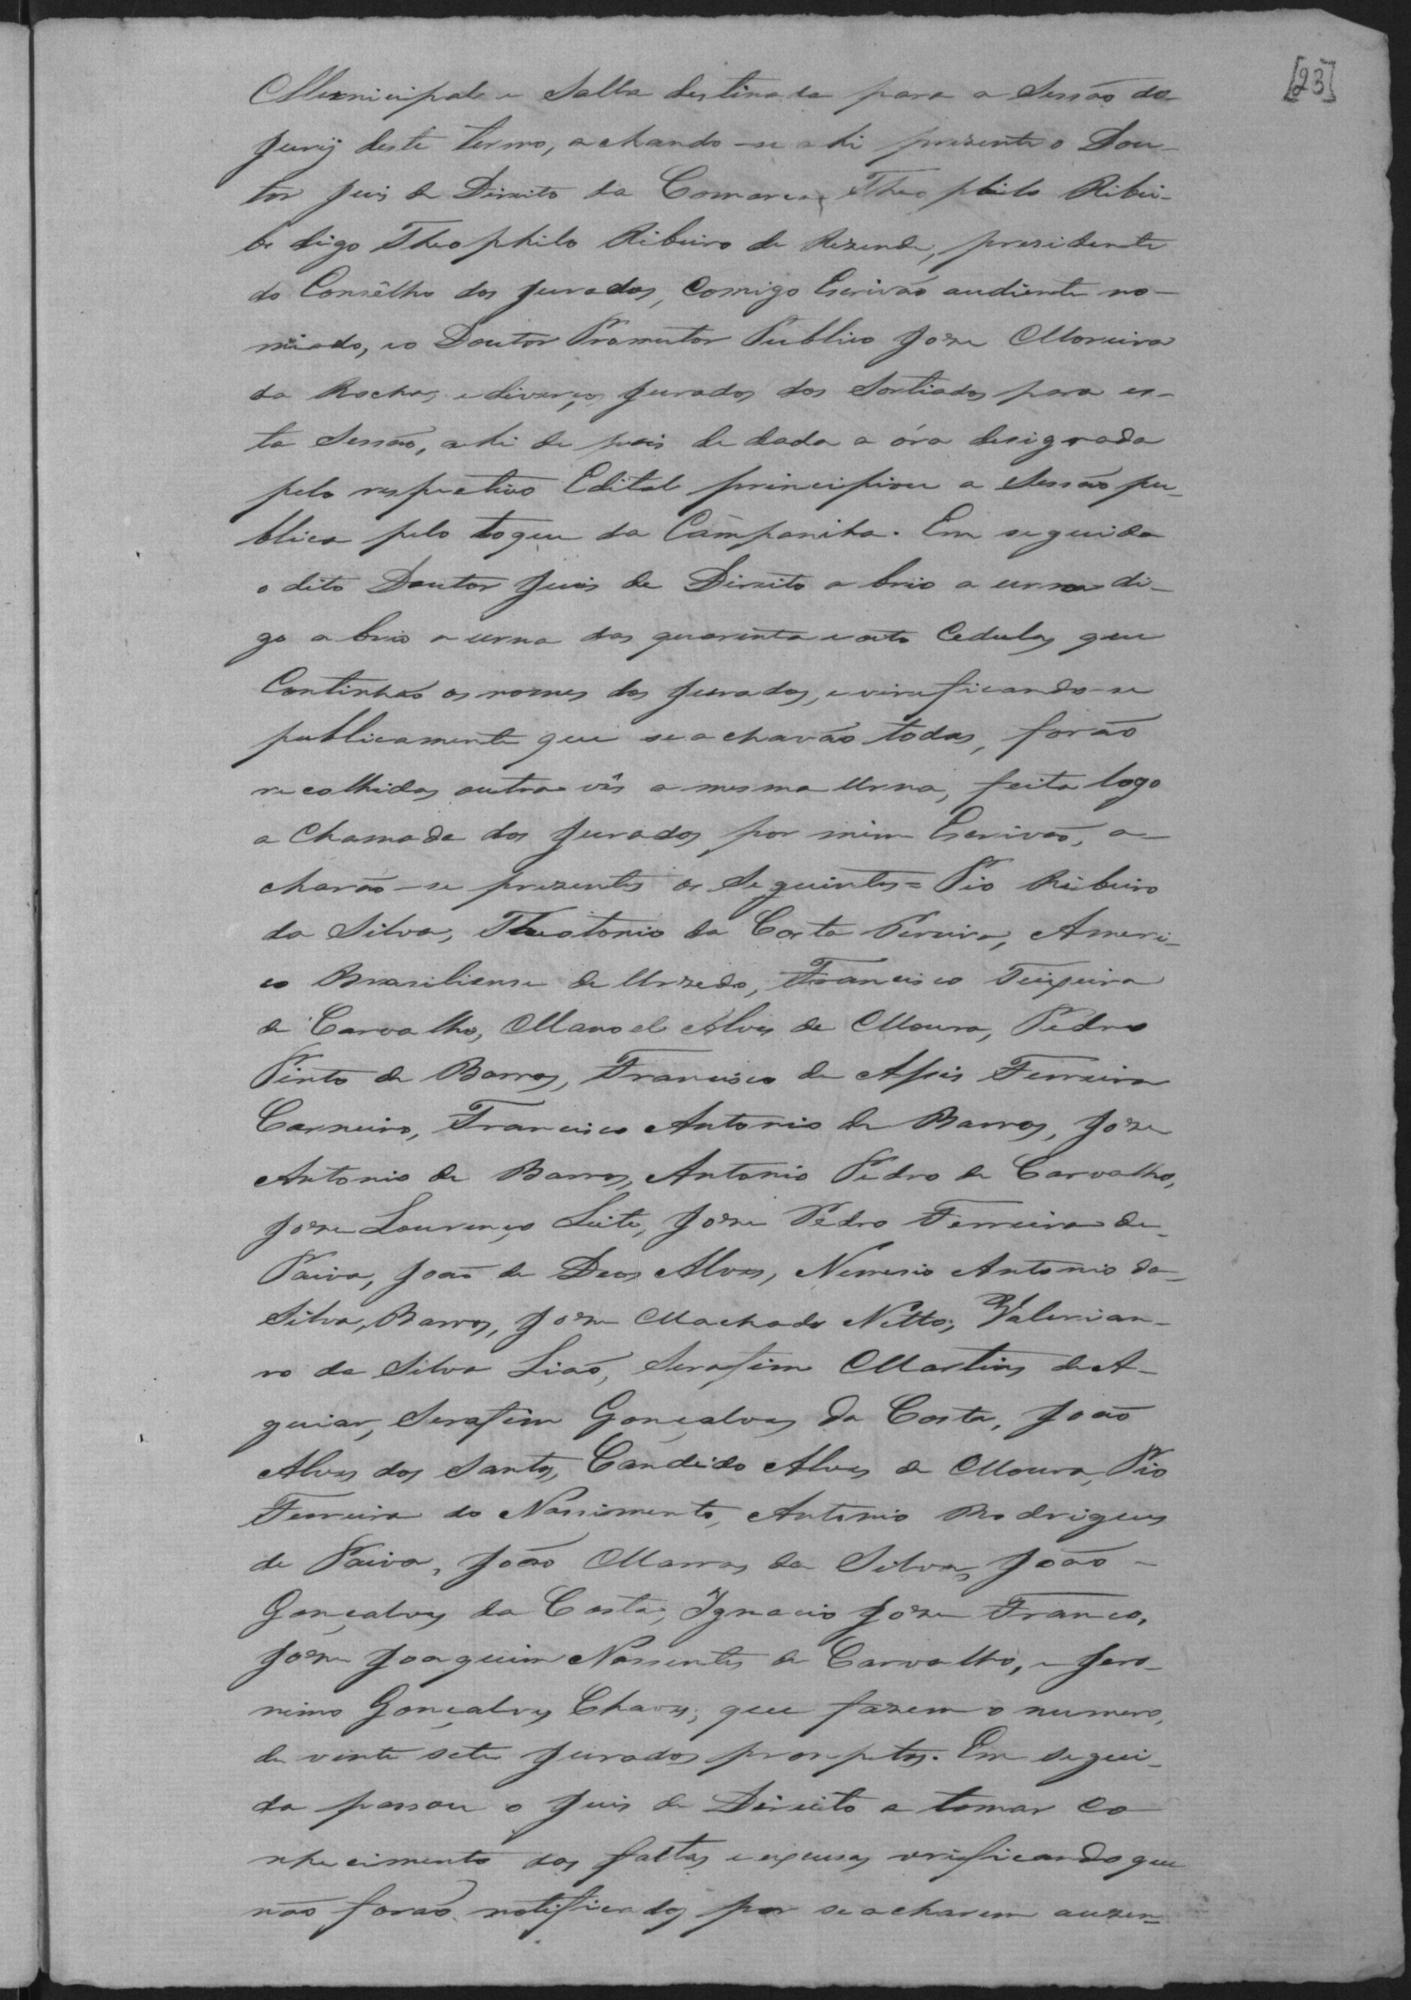 [23]
Municipal e Salla destinada para a Sessão do
Jury deste termo, achando-se ahi prezente o Dou-
tor Juis de Direito da Comarca, Theophilo Ribei-
ro digo Theophilo Ribeiro de Rezende, prezidente
do Consêlho dos Jurados, comigo Escrivão audiente no-
miado, eo Doutor Promutor Publico Joze Moreira
da Rocha, e diverços Jurados dos Sortiados para es-
ta Sessão, ahi de pois de dada a óra designada
pelo respectivo Edital principiou a Sessão pu-
blica pelo toque da Campaniha. Em seguida
o dito Doutor Juis de Direito a brio a urna di-
go a brio a urna das quarenta e oito Cedulas que
Continhão os nomes dos Jurados, e virificando-se
publicamente que se achavão todas, forão
recolhidas outra vês a mesma Urna, feita logo
a Chamada dos Jurados por mim Escrivão, a-
charão-se prezentes os Seguintes = Pio Ribeiro
da Silva, Theotonio da Costa Pereira, Ameri-
co Braziliense de Urzedo, Francisco Teixeira
de Carvalho, Manoel Alves de Moura, Pedro
Pinto de Barros, Francisco de Assis Ferreira
Carneiro, Francisco Antonio de Barros, Joze
Antonio de Barros, Antonio Pedro de Carvalho,
Joze Lourenço Leite, Joze Pedro Ferreira de
Paiva, João de Deos Alves, Nemezio Antonio da
Silva Barros, Joze Machado Netto, Valerian-
no da Silva Lião, Serafim Martins de A-
guiar, Serafim Gonçalves da Costa, João
Alves dos Santos, Candido Alves de Moura, Pio
Ferreira do Nassimento, Antonio Rodrigues
de Paiva, João Marra da Silva, João
Gonçalves da Costa, Ignacio Joze Franco,
Joze Joaquim Nassentes de Carvalho, e Jero-
nimo Gonçalves Chaves, que fazem o numero
de vinte sete Jurados promptos. Em segui-
da passou o Juis de Direito a tomar co
nhecimento das faltas e escusas virificando que
não forão notificados por se acharem auzen-